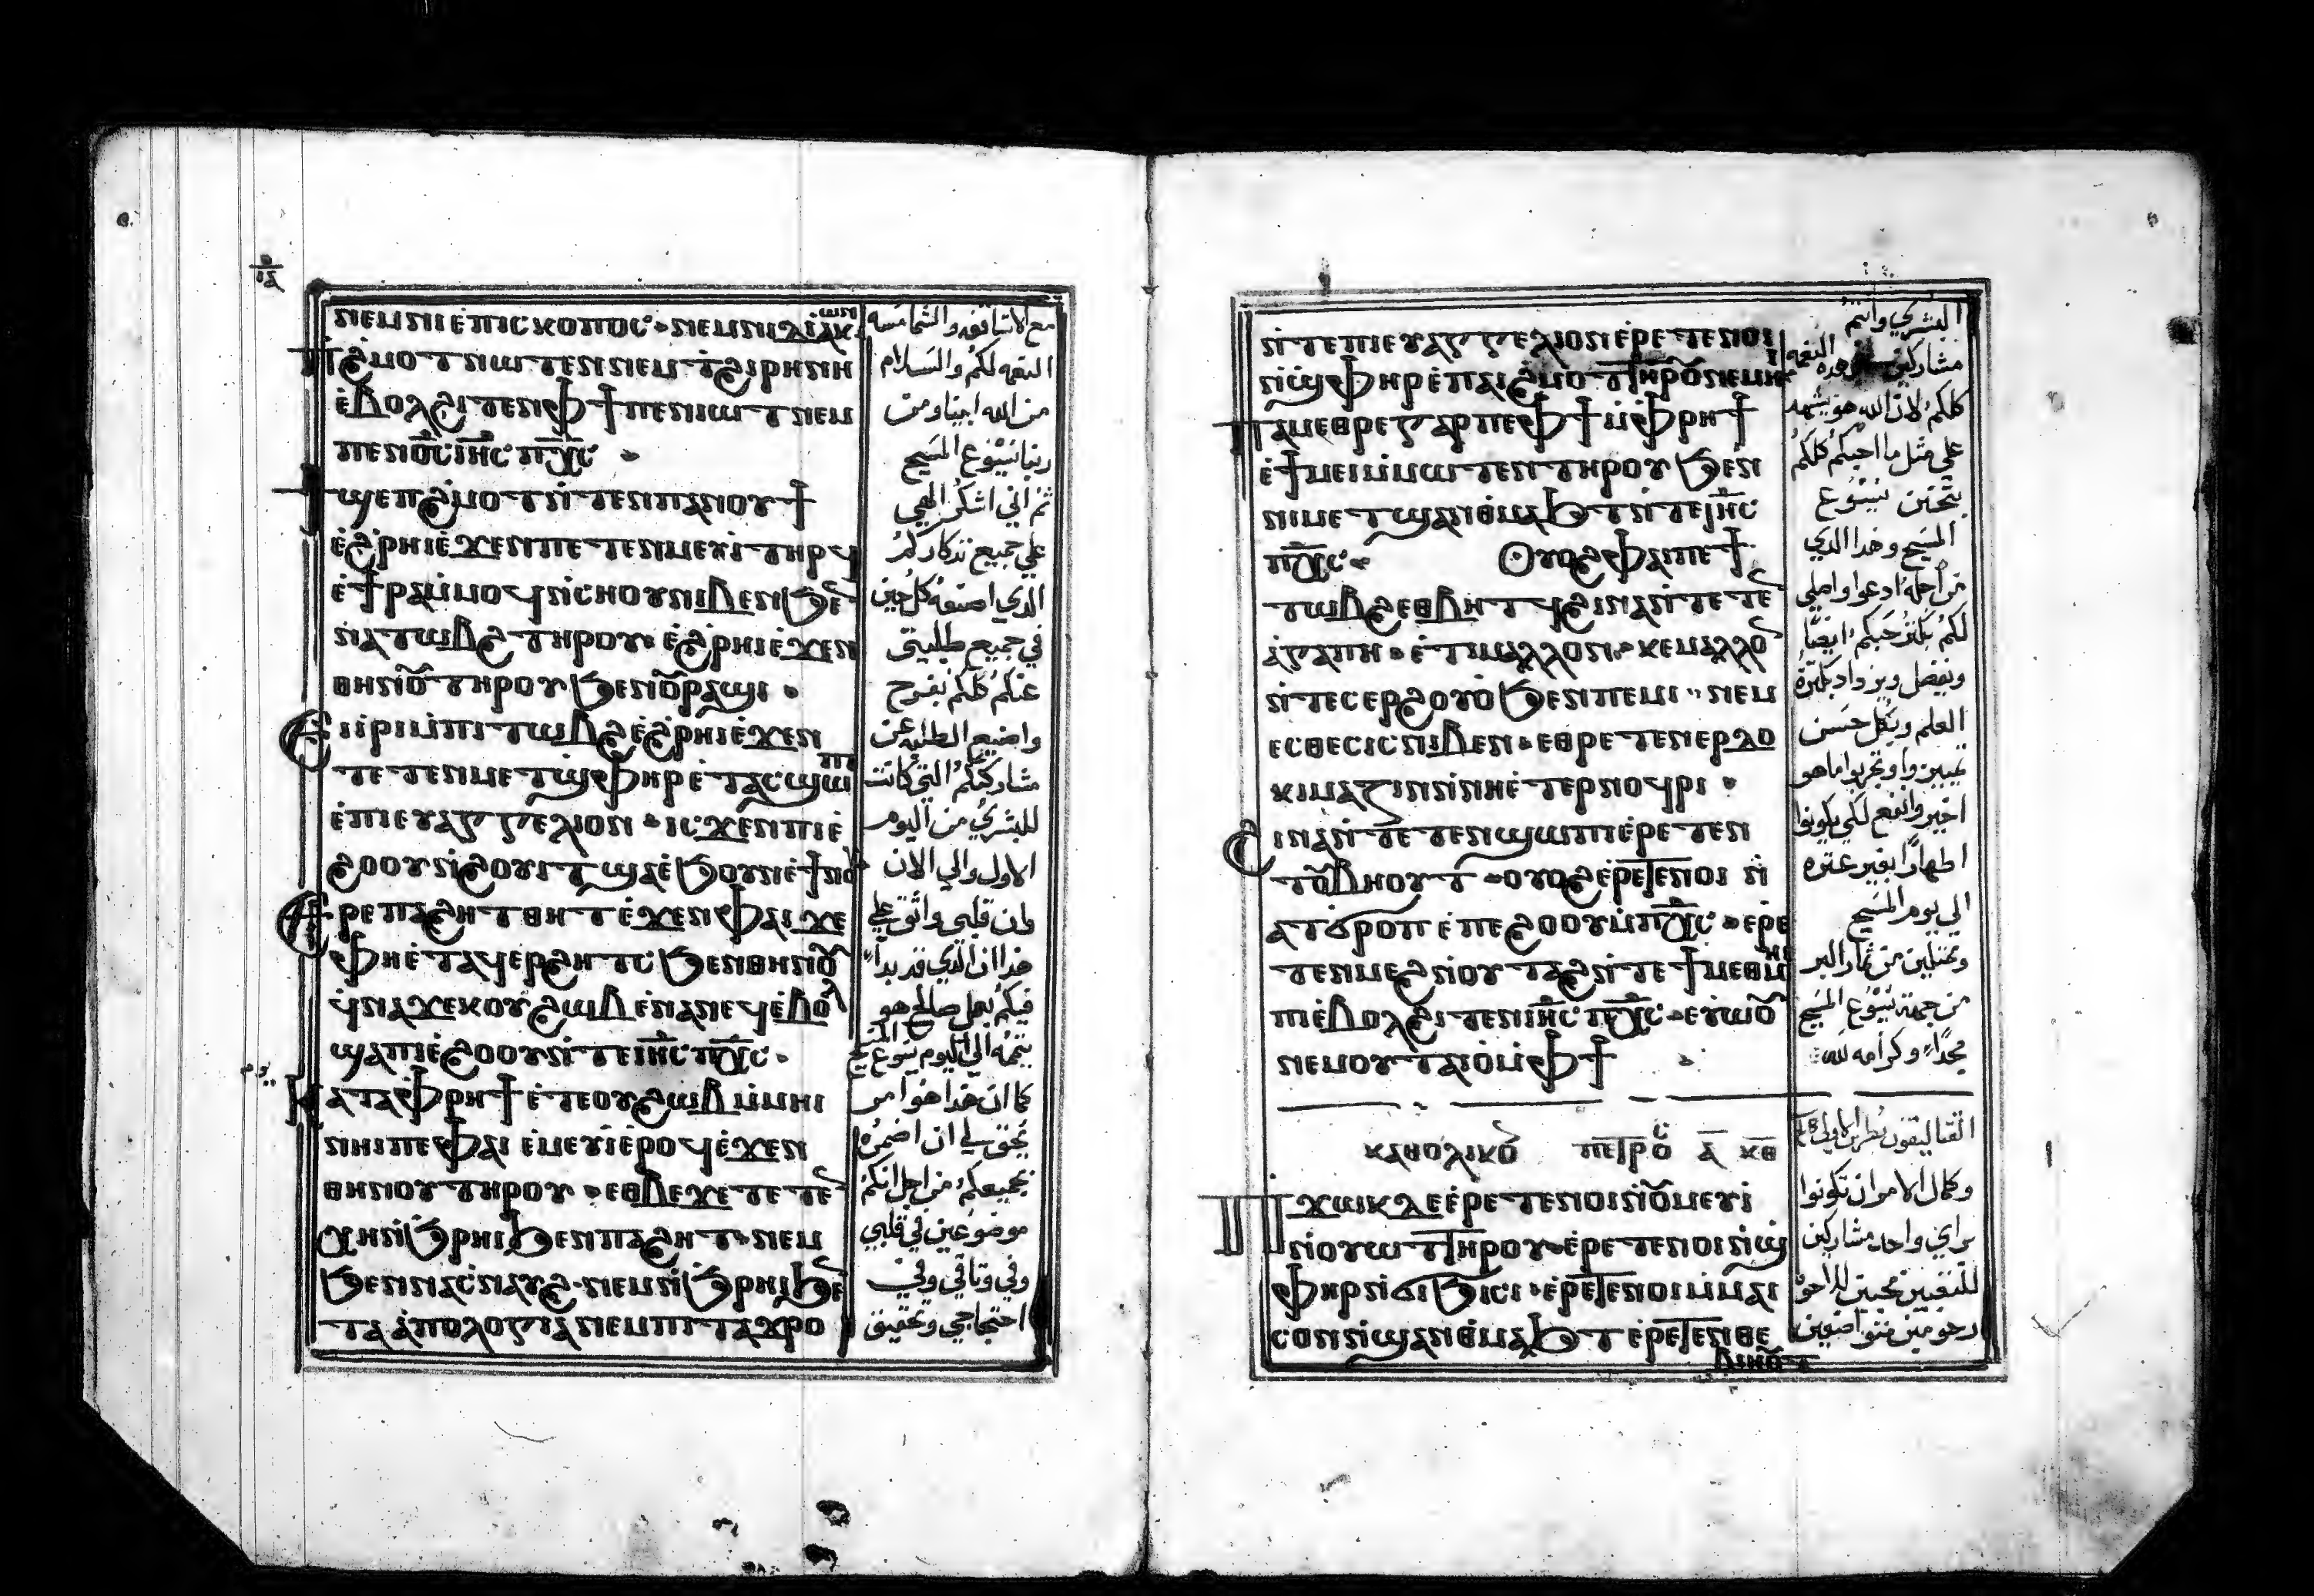 ⲛⲉⲙⲛⲓⲉ̀ⲡⲓⲥⲕⲟⲡⲟⲥ · ⲛⲉⲙⲛⲓⲇⲓⲁ̀ⲕⲱⲛ
ⲡϩ̀ⲙⲟⲧ ⲛⲱⲧⲉⲛ ⲛⲉⲙ ⲧϩⲓⲣⲏⲛⲏ
ⲉ̀ⲃⲟⲗϩⲓⲧⲉⲛⲫϯⲡⲉⲛⲓⲱⲧ ⲛⲉⲙ
ⲡⲉⲛⲟ̅ⲥ̅ ⲓⲏ̅ⲥ̅ ⲡⲭ̅ⲥ̅ ·
ϯϣⲉⲡϩ̀ⲙⲟⲧ ⲛ̀ⲧⲉⲛⲡⲁⲛⲟⲩϯ
ⲉ̀ϩ̀ⲣⲏⲓⲉ̀ϫⲉⲛⲡⲉⲧⲉⲛⲙⲉⲩⲓ̀ ⲧⲏⲣϥ
ⲉ̀ϯⲣⲁⲙ̀ⲙⲟϥ ⲛ̀ⲥⲏⲟⲩ ⲛⲓⲃⲉⲛ ϧⲉ
ⲛⲁⲧⲱⲃϩ ⲧⲏⲣⲟⲩ · ⲉ̀ϩ̀ⲣⲏⲓⲉ̀ϫⲉⲛ
ⲑⲏⲛⲟ̅ ⲧⲏⲣⲟⲩ ϧⲉⲛⲟⲩⲣⲁϣⲓ ·
ⲉⲓⲓ̀ⲣⲓⲙ̀ⲡⲓⲧⲱⲃϩ ⲉ̀ϩ̀ⲣⲏⲓⲉ̀ϫⲉⲛ
ⲧⲉⲧⲉⲛⲙⲉⲧϣ̀ⲫⲏⲣ ⲉ̀ⲧⲁⲥϣⲱⲡⲓ
ⲉ̀ⲡⲓⲉⲩⲁⲅⲅⲉⲗⲓⲟⲛ · ⲓⲥϫⲉⲛⲡⲓⲉ̀
ϩⲟⲟⲩ ⲛ̀ϩⲟⲩⲓⲧ ϣⲁⲉ̀ϧⲟⲩⲛ ⲉ̀ϯⲛⲟⲩ
ⲉⲣⲉⲡⲁϩⲏⲧ ⲑⲏⲧ ⲉ̀ϫⲉⲛⲫⲁⲓ ϫⲉ
ⲫⲏⲉ̀ⲧⲁϥⲉⲣϩⲏⲧⲥ ϧⲉⲛⲑⲏⲛⲟⲩ
ϥ̀ⲛⲁϫⲉⲕⲟⲩϩⲱⲃ ⲉ̀ⲛⲁⲛⲉϥ ⲉ̀ⲃⲟⲗ
ϣⲁⲡⲓⲉ̀ϩⲟⲟⲩ ⲛ̀ⲧⲉⲓⲏ̅ⲥ̅ ⲡⲭ̅ⲥ̅ ·
ⲕⲁⲧⲁⲫ̀ⲣⲏϯ ⲉ̀ⲧⲉⲟⲩϩⲱⲃ ⲙ̀ⲙⲏⲓ
ⲛⲏⲓⲡⲉⲫⲁⲓ ⲉ̀ⲙⲉⲩⲓ̀ ⲉ̀ⲣⲟϥ ⲉ̀ϫⲉⲛ
ⲑⲏⲛⲟⲩ ⲧⲏⲣⲟⲩ · ⲉⲑⲃⲉϫⲉ ⲧⲉⲧⲉ
ⲭⲏ ⲛ̀ϧ̀ⲣⲏⲓ ϧⲉⲛⲡⲁϩⲏⲧ · ⲛⲉⲙ
ϧⲉⲛⲛⲁⲥ̀ⲛⲁⲩϩ · ⲛⲉⲙ ⲛ̀ϧ̀ⲣⲏⲓ ϧⲉ
ⲧⲁⲁ̀ⲡⲟⲗⲟⲅⲓⲁ ⲛⲉⲙⲡⲓⲧⲁϫⲣⲟ
مع الاساقفه والشمامسه
النعمه لكم والسلام
من الله ابينا ومن
ربنا يسوع المسيح
ثم اني اشكر الهي
علي جميع تذكاركم
الذي اصنعه كل حين
في جميع طلبتي
عنكم كلكم بفرح
واصنع الطلبه عن
مشاركتكم التي كانت
للبشري من اليوم
الاول والي الان
فان قلبي واثق علي
هذا ان الذي قد بدا
فيكم بعمل صالح هو
يتمه الي اليوم يسوع المسيح
كما ان هذا هو امر
يحق لي ان اضمره
بجميعكم من اجل انكم
موضوعين في قلبي
وفي وثاقي وفي
احتجاجي وتحقيق
ⲛ̀ⲧⲉⲡⲓⲉⲩⲁⲅⲅⲉⲗⲓⲟⲛ ⲉ̀ⲣⲉⲧⲉⲛⲟⲓ
ⲛ̀ϣ̀ⲫⲏⲣ ⲉ̀ⲡⲁⲓϩ̀ⲙⲟⲧ ⲧⲏⲣⲟⲩ ⲛⲉⲙⲏⲓ
ⲡⲁⲙⲉⲑⲣⲉ ⲅⲁⲣ ⲡⲉⲫϯ ⲙ̀ⲫ̀ⲣⲏϯ
ⲉ̀ϯⲙⲉⲓ ⲙ̀ⲙⲱⲧⲉⲛ ⲧⲏⲣⲟⲩ ϧⲉⲛ
ⲛⲓⲙⲉⲧϣⲁⲛⲑⲙⲁϧⲧ ⲛ̀ⲧⲉⲓⲏ̅ⲥ̅
ⲡⲭ̅ⲥ̅ · ⲟⲩⲟϩ ⲫⲁⲓⲡⲉϯ
ⲧⲱⲃϩ ⲉⲑⲃⲏⲧϥ ϩⲓⲛⲁ ⲛ̀ⲧⲉⲧⲉ
ⲁ̀ⲅⲁⲡⲏ · ⲉ̀ⲧⲓⲙⲁⲗⲗⲟⲛ · ⲕⲉⲙⲁⲗⲗⲟ
ⲛ̀ⲧⲉⲥⲉⲣϩⲟⲩⲟ̀ ϧⲉⲛⲡⲉⲙⲓ · ⲛⲉⲙ
ⲉⲥⲑⲉⲥⲓⲥ ⲛⲓⲃⲉⲛ · ⲉⲑⲣⲉⲧⲉⲛⲉⲣⲇⲟ
ⲕⲓⲙⲁⲍⲓⲛ ⲛ̀ⲛⲏⲉ̀ⲧⲉⲣⲛⲟϥⲣⲓ ·
ϩⲓⲛⲁ ⲛ̀ⲧⲉⲧⲉⲛϣⲱⲡⲓ ⲉ̀ⲣⲉⲧⲉⲛ
ⲧⲟⲩⲃⲏⲟⲩⲧ · ⲟⲩⲟϩ ⲉ̀ⲣⲉⲧⲉⲛⲟⲓ ⲛ̀
ⲁⲧϭⲣⲟⲡ ⲉ̀ⲡⲉϩⲟⲟⲩ ⲙ̀ⲡⲭ̅ⲥ̅ · ⲉⲣⲉ
ⲧⲉⲛⲙⲉϩ ⲛ̀ⲟⲩⲧⲁϩ ⲛ̀ⲧⲉϯⲙⲉⲑⲙⲏⲓ
ⲡⲓⲉ̀ⲃⲟⲗϩⲓⲧⲉⲛⲓⲏ̅ⲥ̅ ⲡⲭ̅ⲥ̅ · ⲉⲩⲱⲟⲩ
ⲛⲉⲙⲟⲩⲧⲁⲓⲟ̀ ⲙ̀ⲫϯ
ⲕⲁⲑⲟⲗⲓⲕⲟⲛ ⲡⲉⲧⲣⲟⲥ ⲁ̅ ⲕⲑ
ⲡϫⲱⲕ ⲇⲉ ⲉ̀ⲣⲉⲧⲉⲛⲟⲓ ⲛ̀ⲟⲩⲙⲉⲩⲓ̀
ⲛ̀ⲟⲩⲱⲧ ⲧⲏⲣⲟⲩ · ⲉ̀ⲣⲉⲧⲉⲛⲟⲓ ⲛ̀ϣ̀
ⲫⲏⲣ ⲛ̀ϭⲓϧⲓⲥⲓ · ⲉ̀ⲣⲉⲧⲉⲛⲟⲓ ⲙ̀ⲙⲁⲓ
ⲥⲟⲛ ⲛ̀ϣⲁⲛⲑⲙⲁϧⲧ ⲉ̀ⲣⲉⲧⲉⲛⲑⲉ
ⲃⲓⲏⲟⲩⲧ
البشري وانتم
مشاركين هذه النعمه
كلكم لان الله هو يشهد
علي مثل ما احبكم كلكم
بتحنن يسوع
المسيح وهذا الذي
من اجله ادعوا واصلي
لكم يكثر حبكم ايضا
ويفضل ويزداد بكثرة
العلم وبكل حسن
تميزوا وتجربوا ماهو
اخير وانفع لكي يكونوا
اطهارًا بغير عثره
الي يوم المسيح
وتمتلين من ثمار البر
من جهة يسوع المسيح
مجدًا وكرامه لله
القتاليقون بطرس الاولي
وكمال الامر ان تكونوا
براي واحد مشاركين
للتعبين محبين للاخوة
رحومين متواضعين